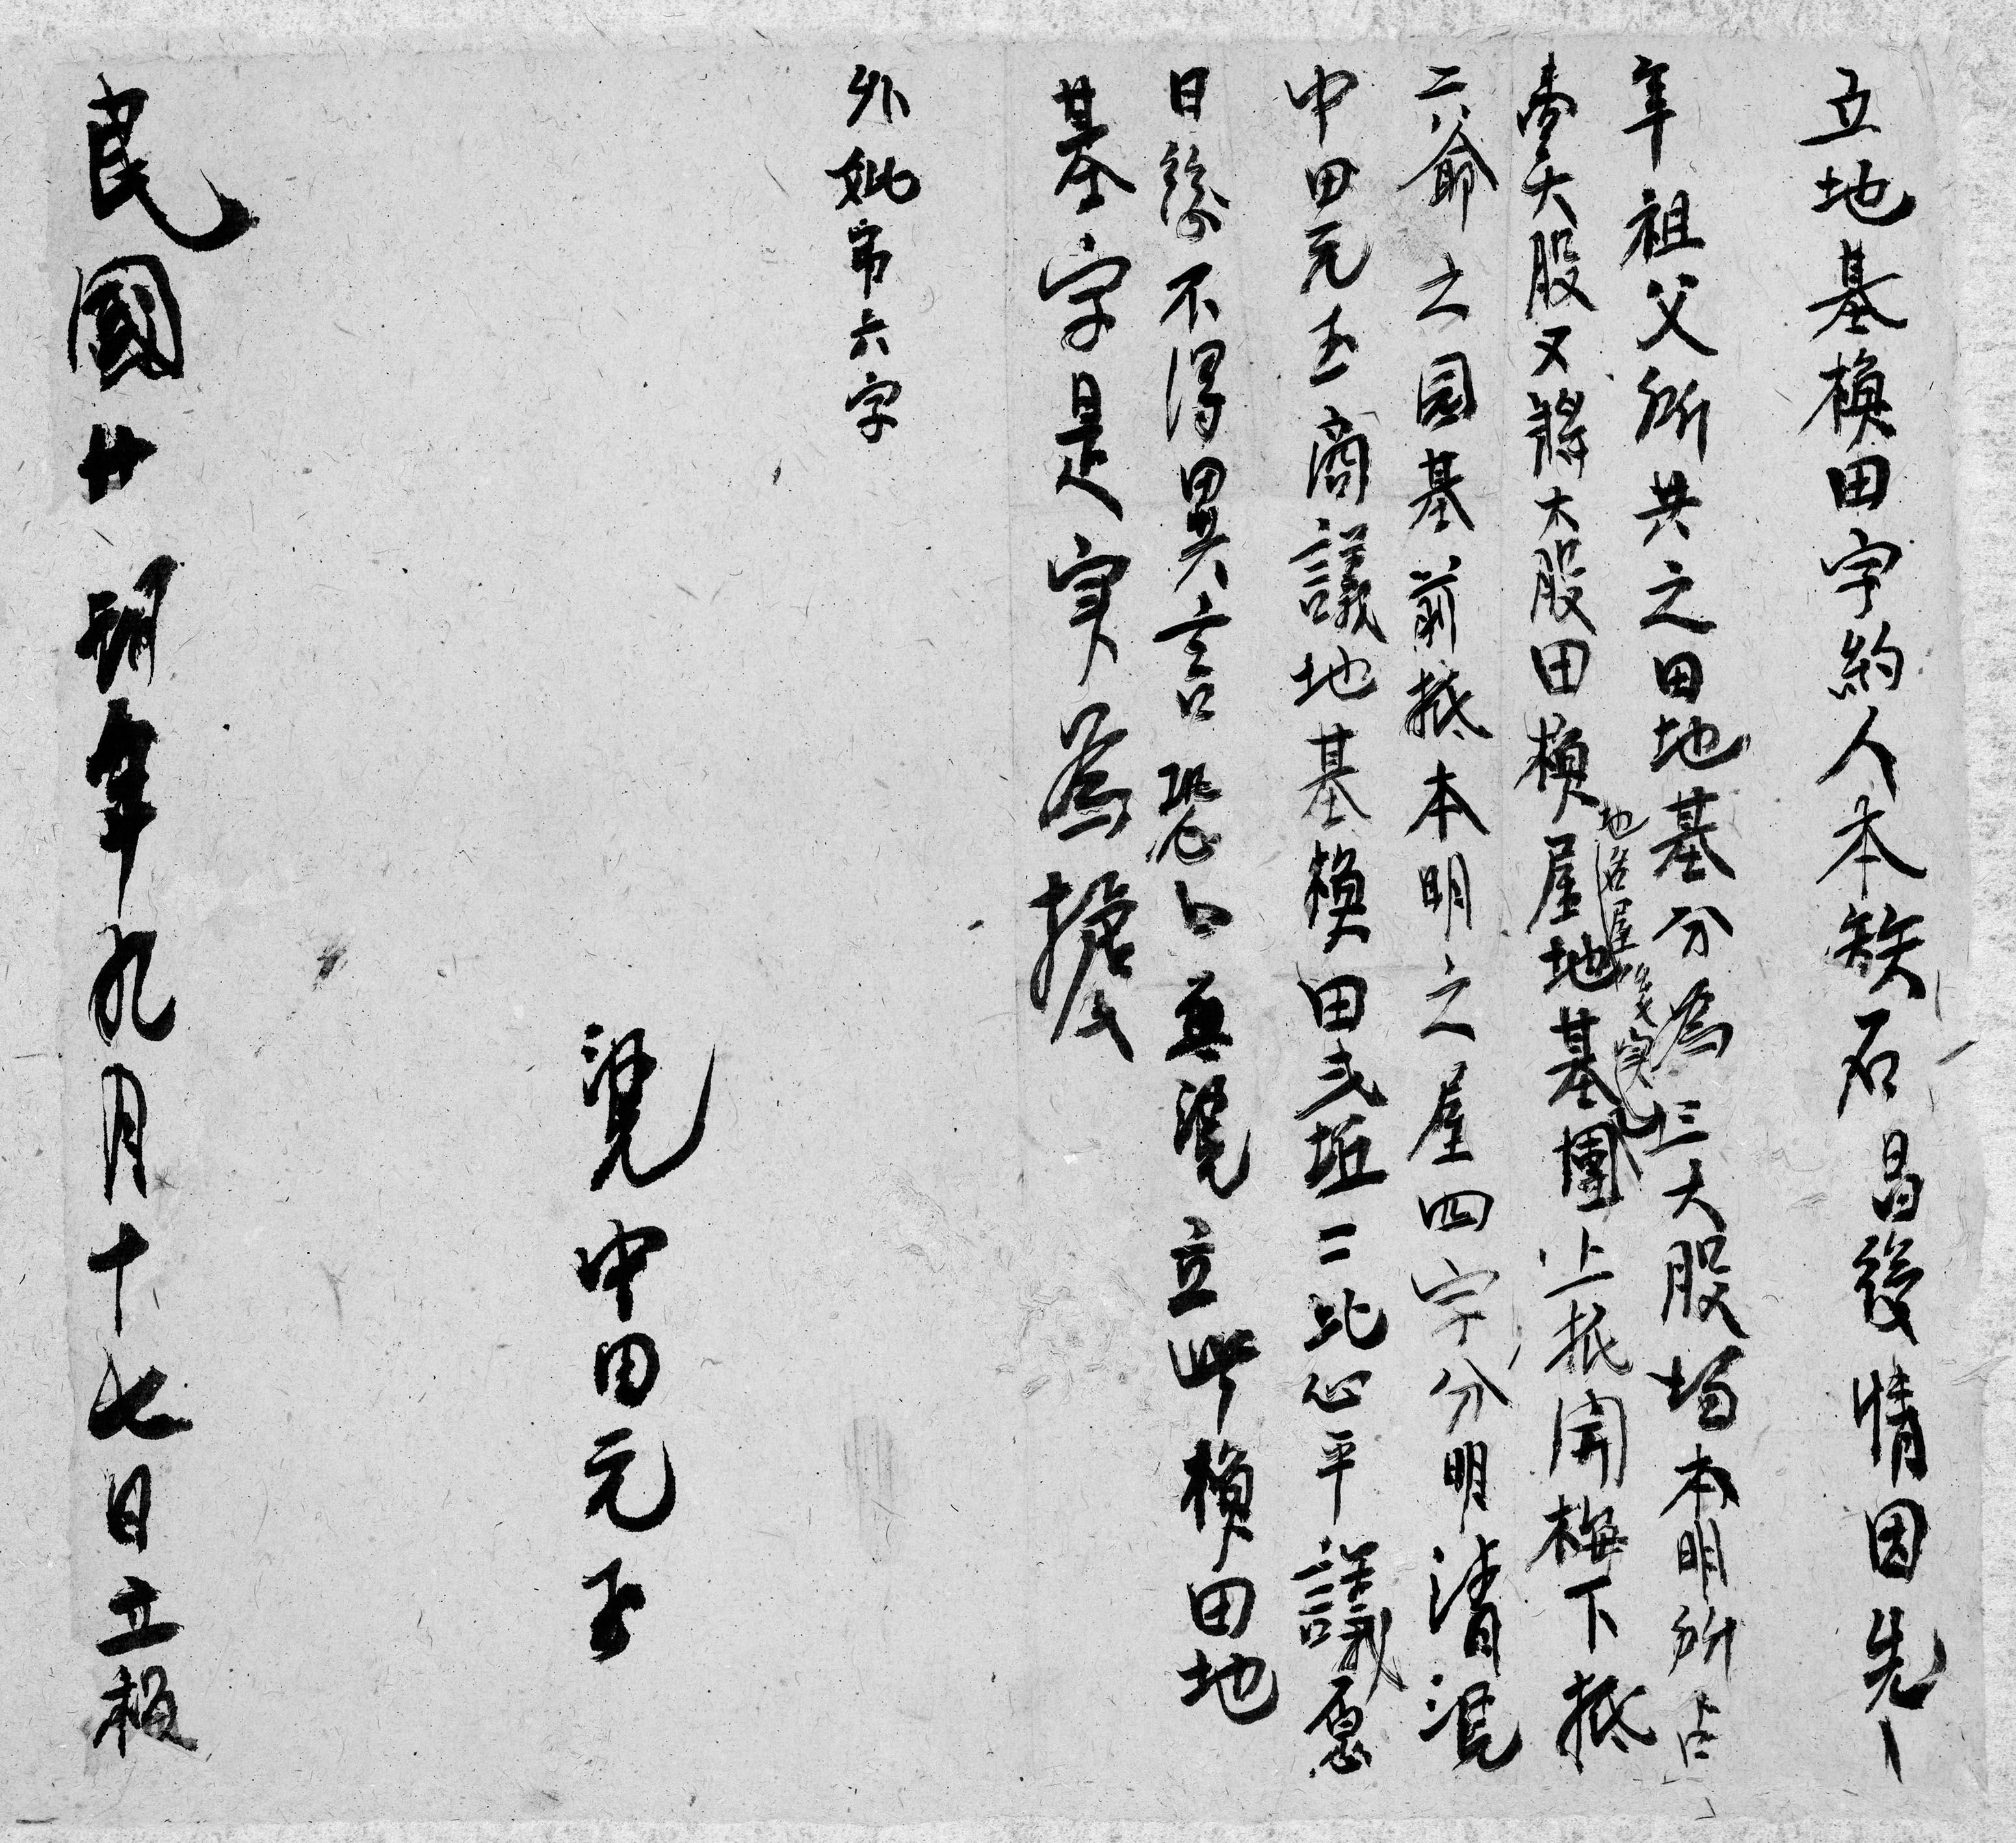 立地基换田字約人本族石昌後情因先
年祖父所共之田地基分為三大股塲本明所占
壹大股又將大股田换屋地基團上抵開梅下抵
地名屋後
二爺之园基前抵本明之屋四字分明清凴
中田元玉商議地基换田弍坵二比心平議愿
日後不得異言恐口無凴立此换田地
基字是实為據
外批 六字
凴中田元玉
民國廿 年九月十七日立